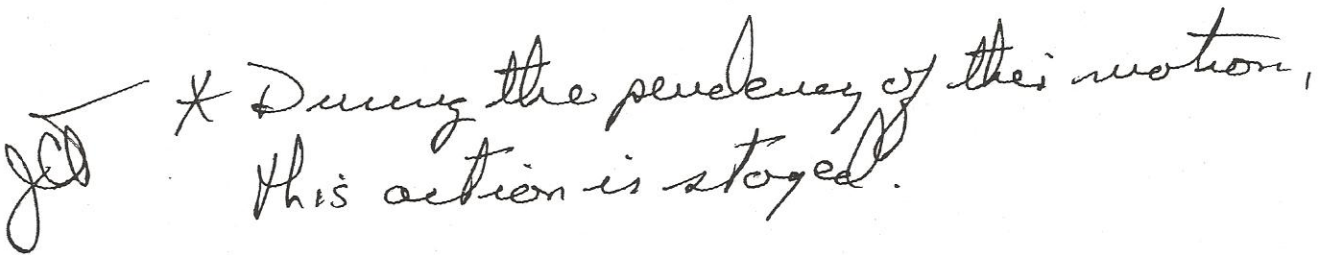 * During the pendency of this motion,
this action is stayed.